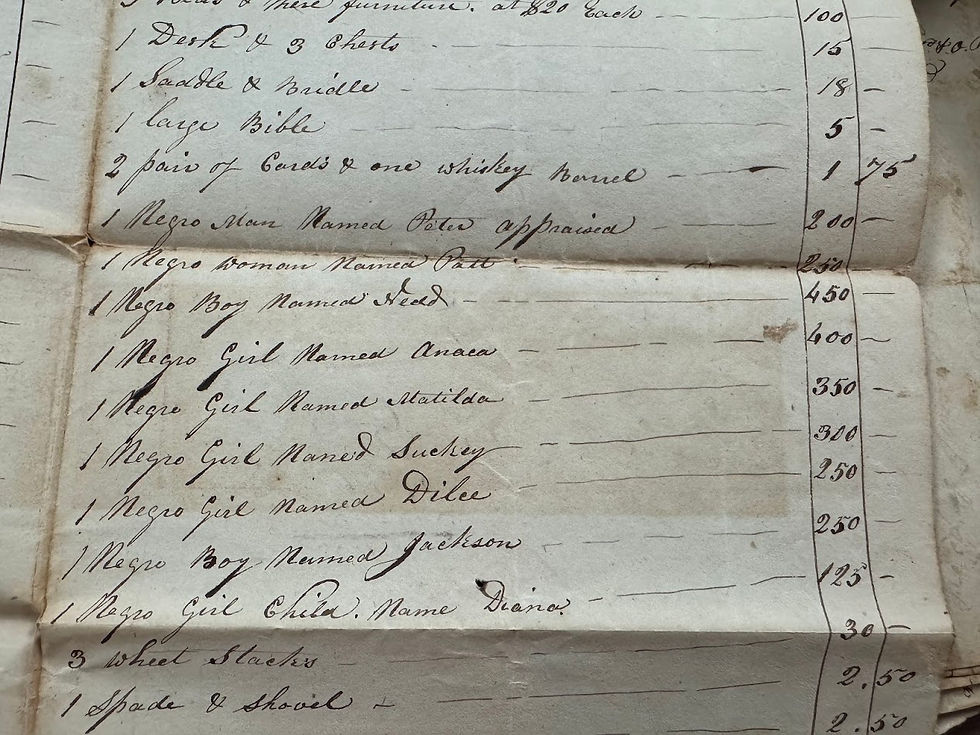 & there furniture. at $20 Each 100
1 Desk & 3 Chests 15
1 Saddle & Bridle 18 -
1 large Bible 5 -
2 pair of Cards & one whiskey Barrel 1 75
1 Negro Man Named Peter appraised 200 -
1 Negro woman Named Patt 250 -
1 Negro Boy Named Nedd 450 -
1 Negro Girl Named Anaca 400 -
1 Negro Girl Named Matilda 350 -
1 Negro Girl Named Suckey 300 -
1 Negro Girl Named Dilce 250 -
1 Negro Boy Named Jackson 250 -
1 Negro Girl Child. Name Diana 125 -
3 wheet Stacks 30 -
1 Spade & Shovel 2.50
2.50